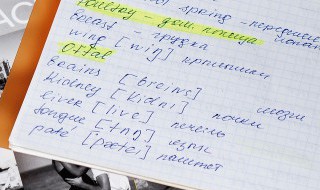 spring - переченев
Poultry - дом. птица
breast - грудка
wing [wiŋ] крылышки
Offal
Brains [breins] мозги
Kidney [Kidni] почки
liver [live] печень
tongue [tʌŋ] язык
paté [pætei] паштет